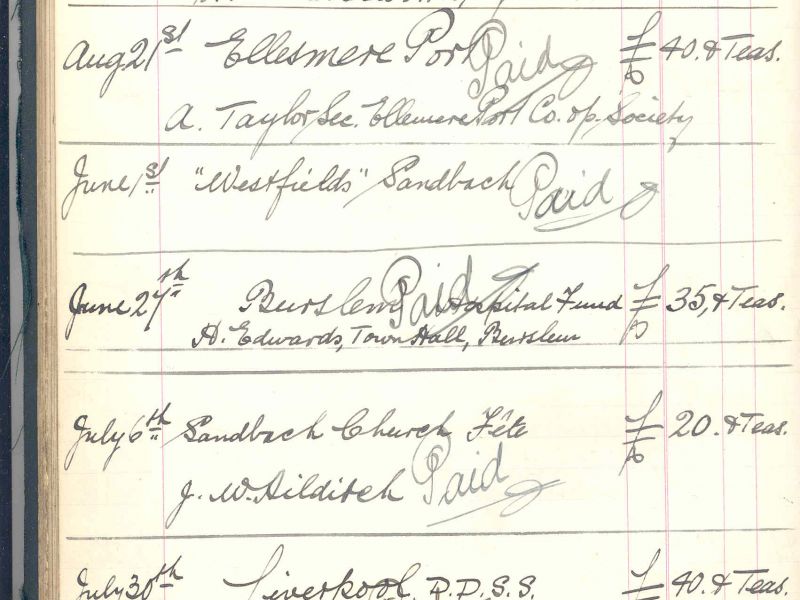 Aug 21st Ellesmere Port Paid £ 40. & Teas.
A. Taylor Sec. Ellemere Port Co. op. Society
June 1st "Westfields" Sandbach Paid
June 27th Burslem Hospital Fund Paid £ 35, & Teas.
H. Edwards, Town Hall, Burslem
July 6th Sandbach Church Fête £ 20. & Teas.
J. W. Hilditch Paid
July 30th Liverpool. £ 40. & Teas.